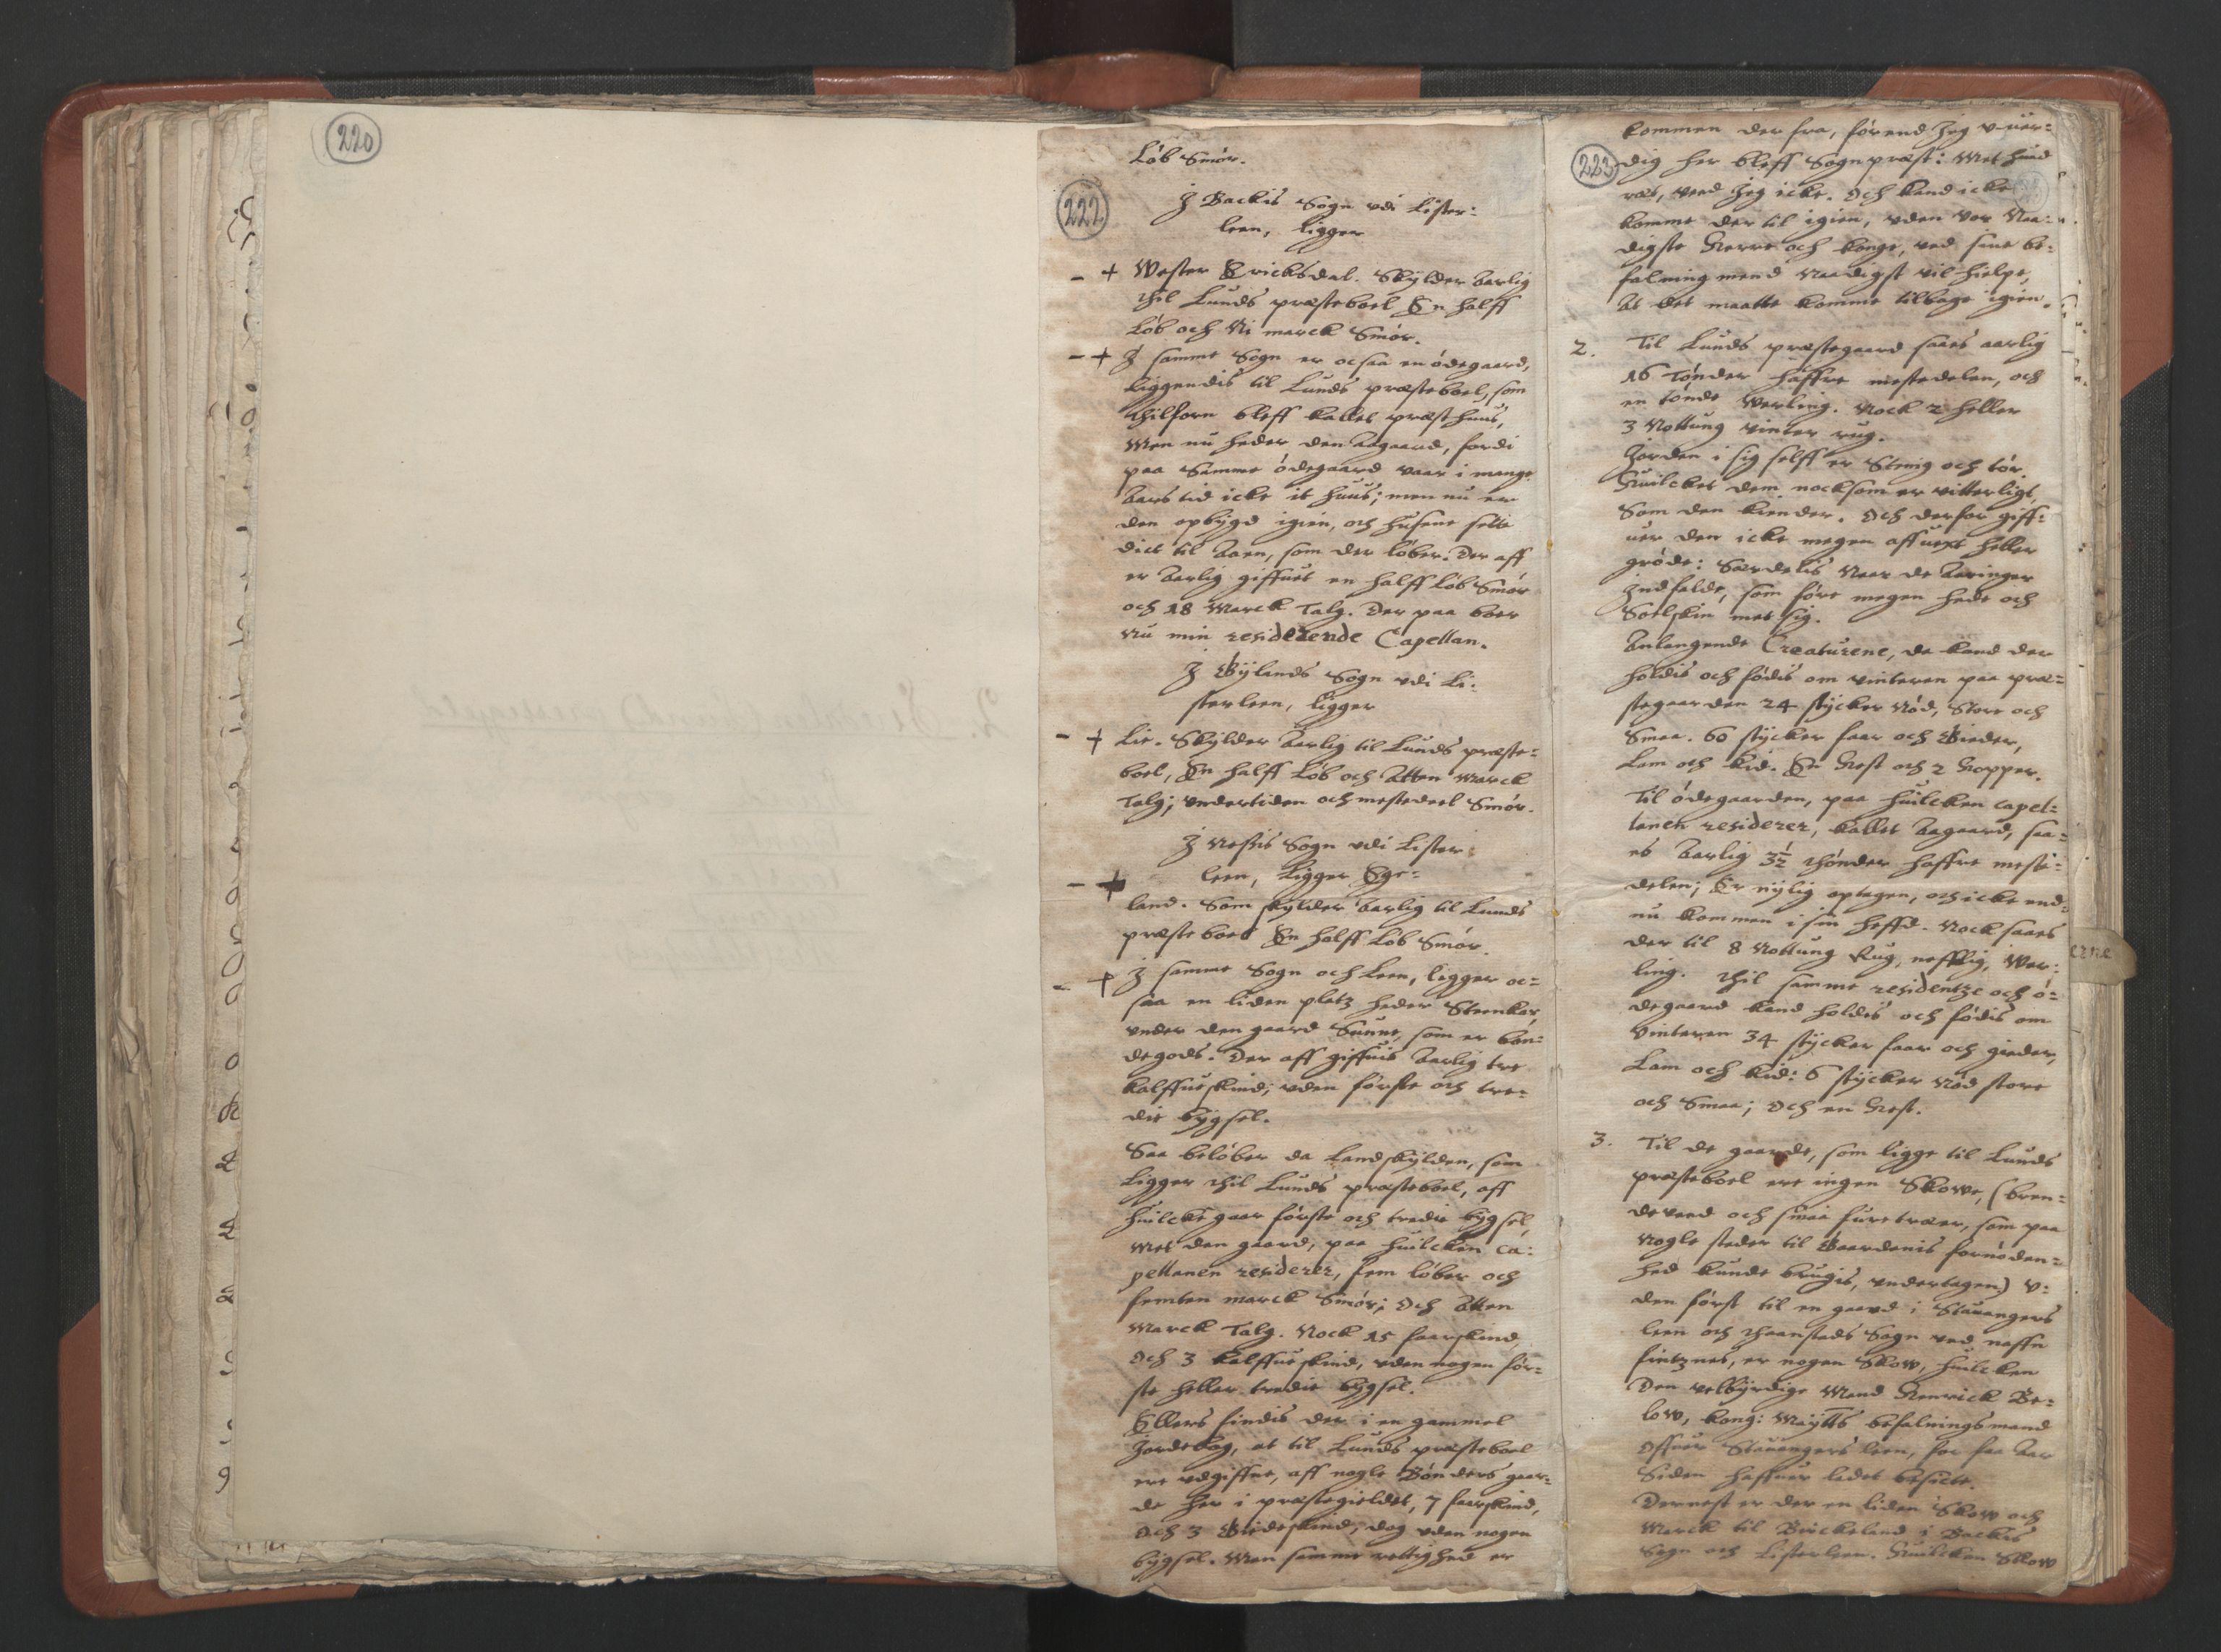 220
222
Løb Smør.
J Backis Sogn vdi Lister:
leen, ligger
- + Wester Ericksdal. Skÿlder Aarlig
thil Lunds præsteboel En halff
Løb och Ni marck Smør.
- + J samme Sogn er ocsaa en ødegaard,
liggendis til Lunds præsteboel, som
thilforn bleff kallet præsthuus,
Men nu heder den Aagaard, fordi
paa Samme ødegaard vaar i mange
Aars tid icke it huus; men nu er
den opbÿgd igien, och husene sette
dict til Aaen, som der løber. Der aff
er Aarlig giffuet en halff Løb Smør
och 18 Marck Talg. Der paa boer
Nu min residerende Capellan.
J Bÿlands Sogn vdi Li:
sterleen, ligger
- + Lie. Skÿlder Aarlig til Lunds præste:
boel, En halff Løb och Atten Marck
Talg; vndertiden och mestedeel Smør.
J Nessis Sogn vdi Lister
- + leen, ligger Ege:
land. Som skÿlder Aarlig til Lunds
præsteboel En halff Løb Smør.
- + J samme Sogn och Leen, ligger oc=
saa en liden pletz heder Steenkar,
vnder den gaard Sunne, som er bøn:
degods. Der aff giffuis Aarlig tre
kalffueskind; vden første och tre=
die bÿgsel.
Saa beløber da Landskÿlden, som
Ligger thil Lunds præsteboel, aff
huilcke gaar første och tredie bÿgsel,
Met den gaard, paa huilcken ca:
pellanen residerer, fem løber och
femten marck Smør; Och Atten
Marck Talg. Nock 15 faarskind,
Och 3 kalffueskind, vden nogen før=
ste heller tredie bÿgsel.
Ellers findis der i en gammel
Jordebog, at til Lunds præsteboel
ere vdgiffne, aff nogle Bønders gaar=
de her i præstegieldet, 7 faarskind,
Och 3 Giedeskind; dog vden nogen
bÿgsel. Men samme rettighed er
223
kommen der fra, førend Jeg v-uer=
dig her bleff Sognpræst: Met huad
ræt, veed Jeg icke. Och kand icke
komme der til igien, vden vor Naa:
digste Herre och konge, ved sine be=
falning mend Naadigst vil hielpe,
At det maatte komme tilbage igien.
2. Til Lunds præstegaard saaes aarlig
16 Tønder haffre mestedelen, och
en tønde Værling. Nock 2 heller
3 Nottung vinter rug.
Jorden i sig self er Stenig och tør
Huilcket dem nocksom er vitterligt,
Som den kiender. Och derfor giff=
uer den icke megen affuext heller
grøde: Særdelis Naar de Aaringer
Jndfalde, som føre megen hede och
Soelskin met sig.
Anlangende Creaturene, da kand der
holdis och fødis om vinteren paa præ=
stegaarden 24 stÿcker Nød, Store och
Smaa. 60 stÿcker faar och Gieder,
Lam och kid. En Hest och 2 Hopper.
Til ødegaarden, paa huilcken capel=
lanen residerer, kallet Aagaard, saa=
es Aarlig 3½ thønder haffre meste=
delen; Er nÿlig optagen, och icke end=
nu kommen i sin heffd. Nock saaes
der til 8 Nottung Rug, nefflig, Vær:
ling. Thil samme residentze och ø=
degaard kand holdis och fødis om
Vinteren 34 stÿcker faar och gieder,
Lam och kid: 6 stÿcker Nød store
och Smaa; Och en Hest.
3. Til de gaarde, som ligge til Lunds
præsteboel ere ingen Skowe, (bren=
deveed och smaa furetræer, som paa
Nogle steder til Gaardenis fornøden=
hed kunde brugis, vndertagen) v=
den først til en gaard i Stauangers
leen och Sogn ved naffn
er nogen Skow, huilcken
Den velbÿrdige Mand Henrick Be=
low, kong: Maÿtts befalningsmand
Offuer Stauangers leen, for faa Aar
Siden haffuer ladet besicte.
Dernest er der en liden Skow och
Marck til Brickeland i Backis
Sogn och Listerleen. Huilcken Skow